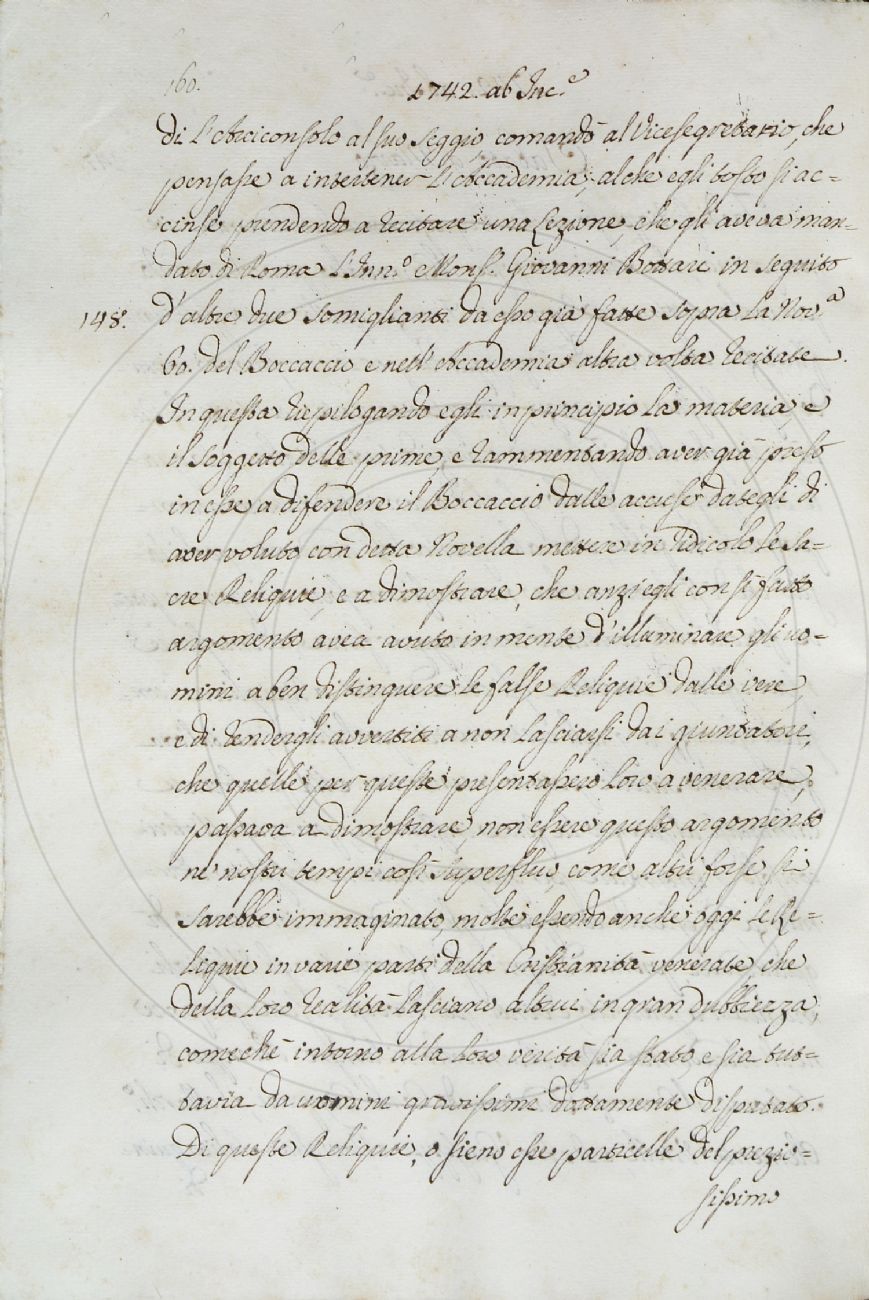 160.
1742. ab Inc.e
di. L'Arciconsolo al suo seggio, comandò al Vicesegretario, che
pensasse a intertener L'Accademia; al che egli tosto si ac=
cinse prendendo a recitare una Lezione, che gli aveva man=
dato di Roma L'Inn.o e Mons.r Giovanni Bottari in seguito
148. d'altre due somiglianti da esso già fatte sopra La Nov.a
60. del Boccaccio e nell'Accademia altra volta recitate.
In questa riepilogando egli in principio La materia, e
il soggetto delle prime, e rammentando aver già preso
in esse a difendere il Boccaccio dalle accuse dategli di
aver voluto con detta Novella mettere in ridicolo Le Sa=
cre Reliquie, e a dimostrare, che anzi egli con sì fatto
argomento avea avuto in mente d'illuminare gli uo=
mini a ben distinguere Le false Reliquie dalle vere,
e di rendergli avvertiti a non Lasciarsi da i giuntatori,
che quelle per queste presentassero Loro a venerare,
passava a dimostrare, non essere questo argomento
ne' nostri tempi così superfluo, come altri forse si
sarebbe immaginato, molte essendo anche oggi Le Re=
liquie in varie parti della Cristianità venerate, che
della Loro realità Lasciano altrui in gran dubbiezza,
comechè intorno alla Loro verità sia stato e sia tut=
tavia da uomini gravissimi dottamente disputato.
Di queste Reliquie, o sieno esse particelle del prezio=
sissimo